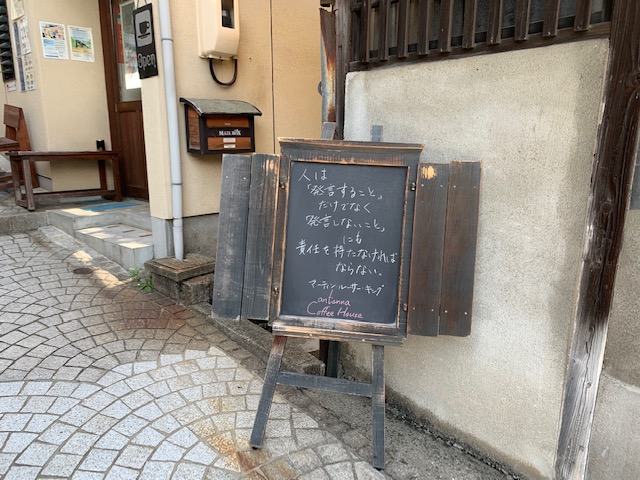 Open
MAIL BOX
人は
「発言すること」
だけでなく
「発言しないこと」
にも
責任を持たなければ
ならない。
マーティン・ルーサー・キング
antenna
Coffee House